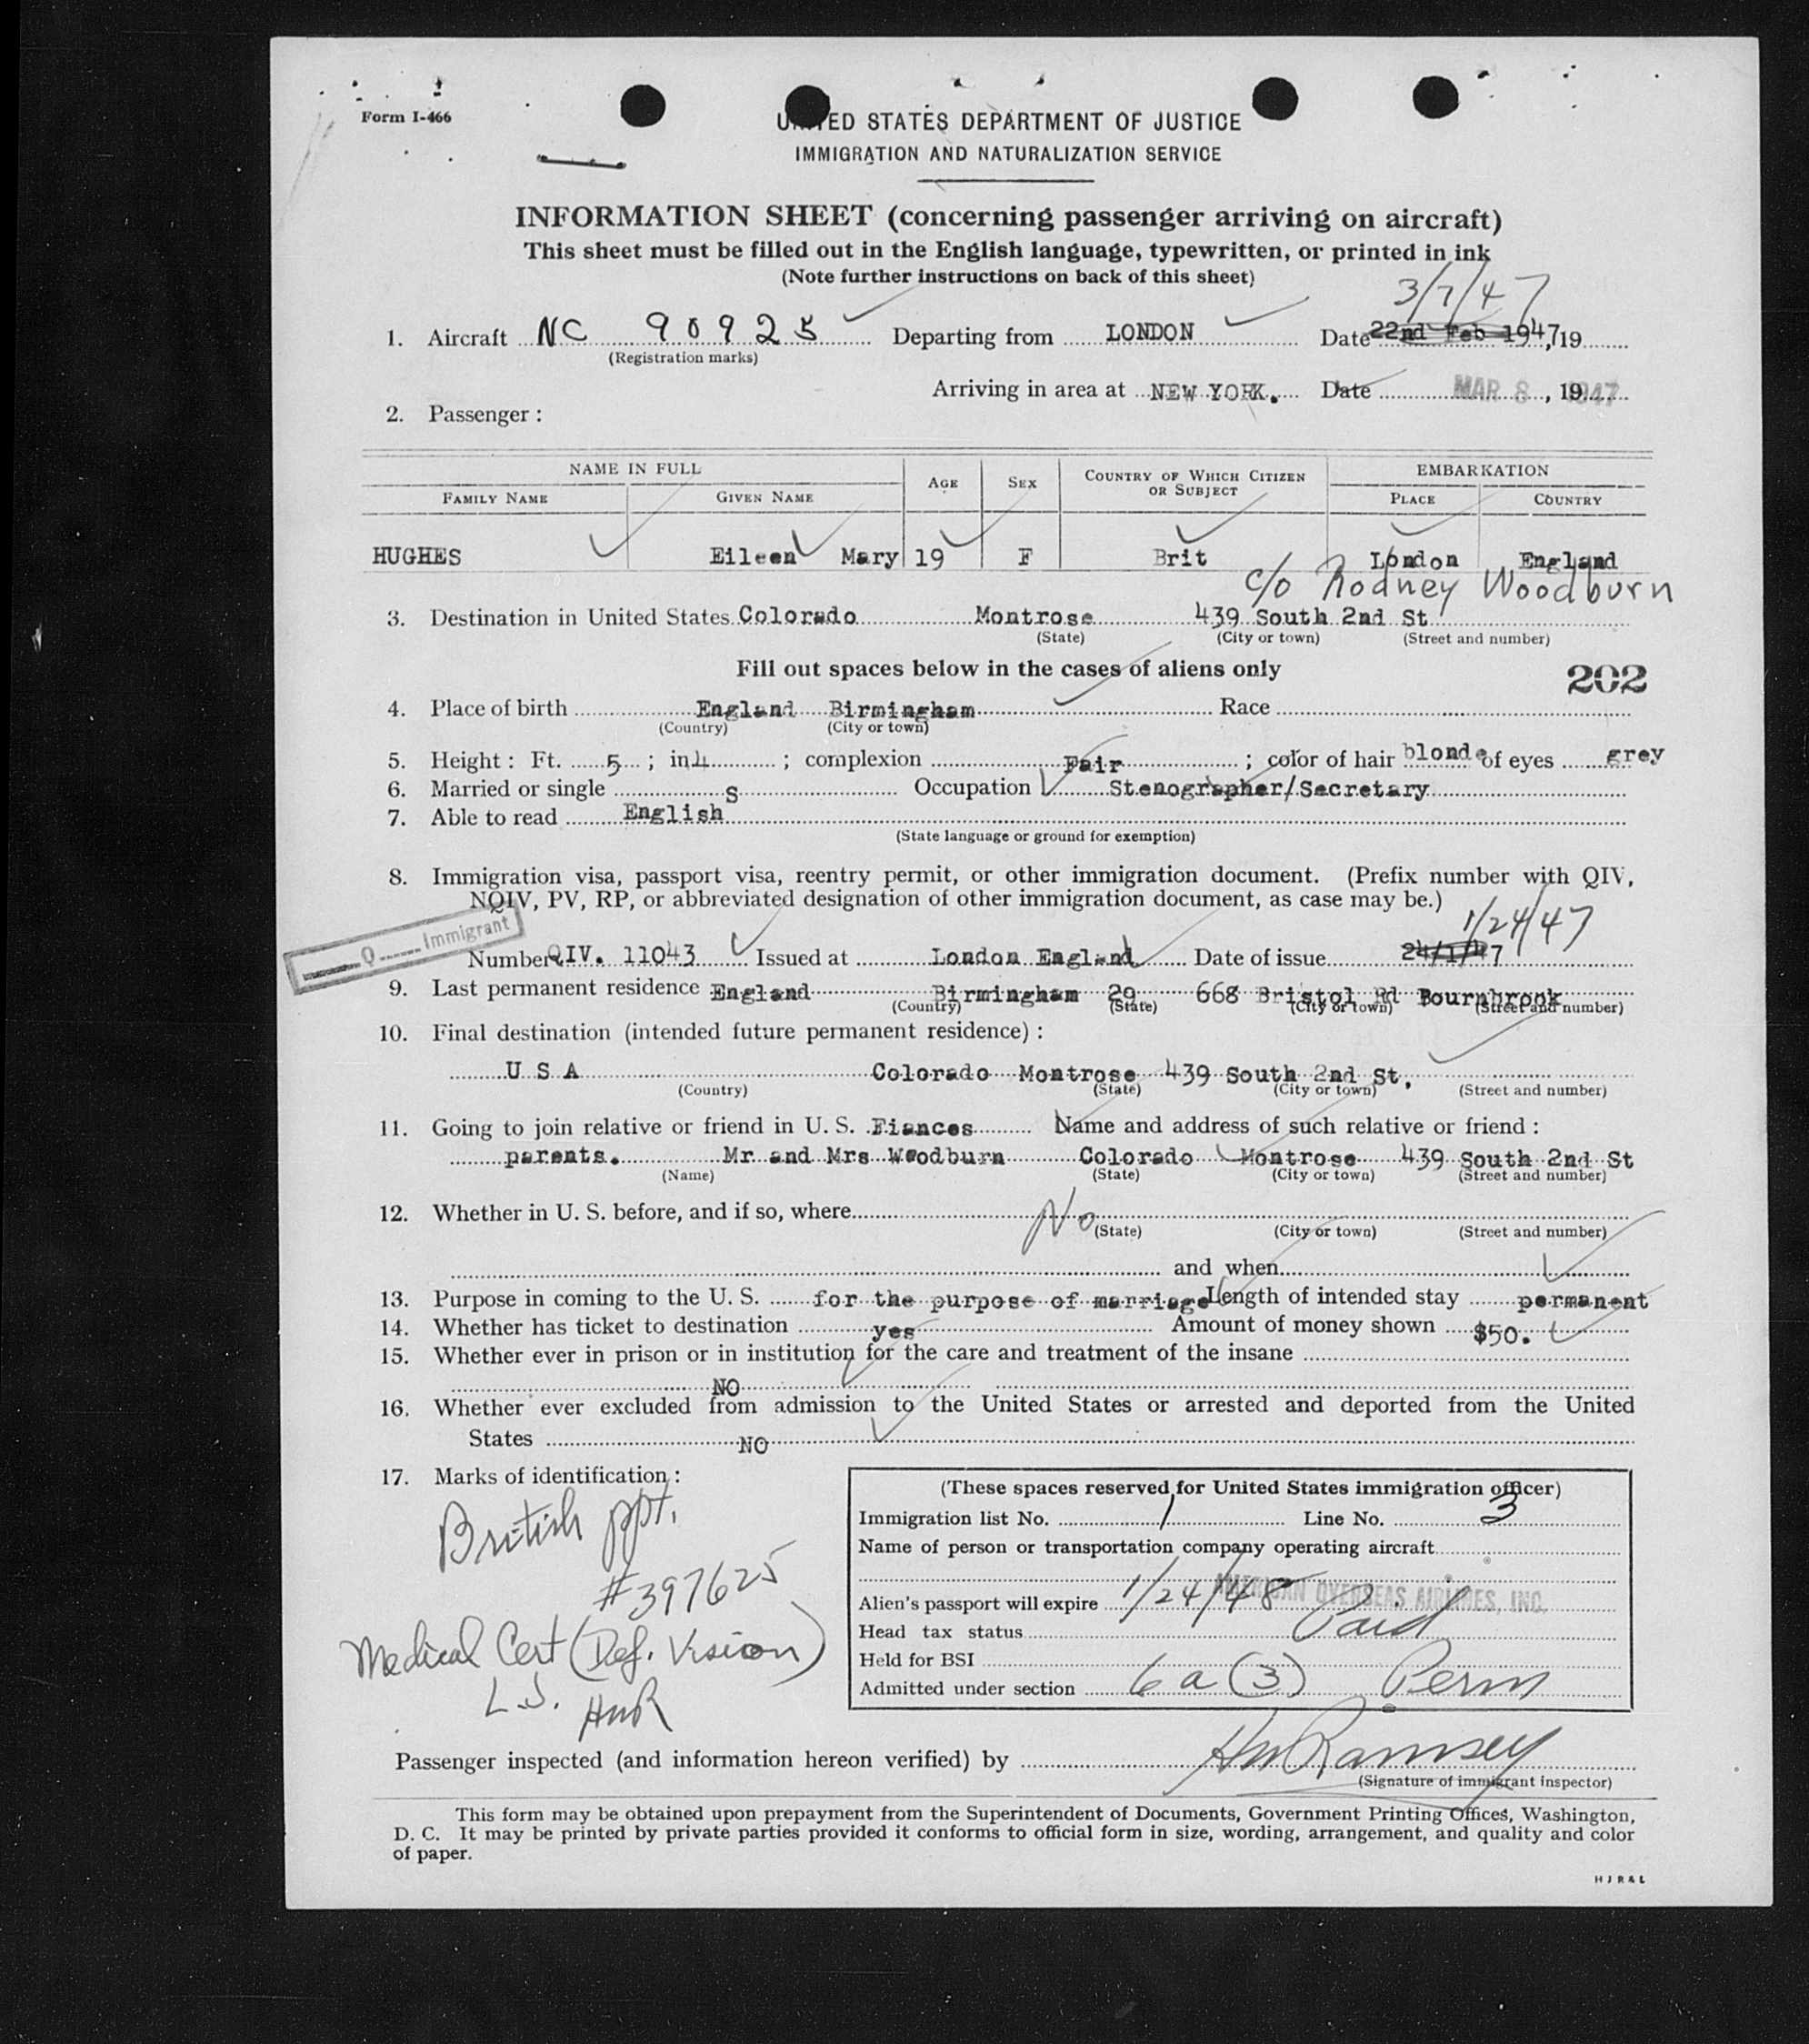 Form I-466
UNITED STATES DEPARTMENT OF JUSTICE
IMMIGRATION AND NATURALIZATION SERVICE
INFORMATION SHEET (concerning passenger arriving on aircraft)
This sheet must be filled out in the English language, typewritten, or printed in ink
(Note further instructions on back of this sheet)
3/7/47
1. Aircraft NC 90925 Departing from LONDON Date 22nd Feb 1947, 19
(Registration marks)
Arriving in area at NEW YORK. Date MAR 8, 19 1947
2. Passenger :
NAME IN FULL AGE SEX COUNTRY OF WHICH CITIZEN OR SUBJECT EMBARKATION
FAMILY NAME GIVEN NAME PLACE COUNTRY
HUGHES Eileen Mary 19 F Brit London England
c/o Rodney Woodburn
3. Destination in United States Colorado Montrose 439 South 2nd St
(State) (City or town) (Street and number)
Fill out spaces below in the cases of aliens only
202
4. Place of birth England Birmingham Race
(Country) (City or town)
5. Height : Ft. 5 ; in. 4 ; complexion Fair ; color of hair blonde of eyes grey
6. Married or single S Occupation Stenographer/Secretary
7. Able to read English
(State language or ground for exemption)
8. Immigration visa, passport visa, reentry permit, or other immigration document. (Prefix number with QIV,
NQIV, PV, RP, or abbreviated designation of other immigration document, as case may be.)
Q Immigrant
1/24/47
Number QIV. 11043 Issued at London England Date of issue 24/1/47
9. Last permanent residence England Birmingham 29 668 Bristol Rd Bournbrook
(Country) (State) (City or town) (Street and number)
10. Final destination (intended future permanent residence) :
U S A Colorado Montrose 439 South 2nd St.
(Country) (State) (City or town) (Street and number)
11. Going to join relative or friend in U. S. Fiances Name and address of such relative or friend :
parents. Mr and Mrs Woodburn Colorado Montrose 439 South 2nd St
(Name) (State) (City or town) (Street and number)
12. Whether in U. S. before, and if so, where No
(State) (City or town) (Street and number)
and when
13. Purpose in coming to the U. S. for the purpose of marriage Length of intended stay permanent
14. Whether has ticket to destination yes Amount of money shown $50.
15. Whether ever in prison or in institution for the care and treatment of the insane
NO
16. Whether ever excluded from admission to the United States or arrested and deported from the United
States NO
17. Marks of identification :
British ppt.
#397625
Medical Cert (Def. Vision)
L.J. HmR
(These spaces reserved for United States immigration officer)
Immigration list No. 1 Line No. 3
Name of person or transportation company operating aircraft
AMERICAN OVERSEAS AIRLINES, INC.
Alien's passport will expire 1/24/48
Head tax status Paid
Held for BSI
Admitted under section 6a(3) Perm
Passenger inspected (and information hereon verified) by HmRamsey
(Signature of immigrant inspector)
This form may be obtained upon prepayment from the Superintendent of Documents, Government Printing Offices, Washington,
D. C. It may be printed by private parties provided it conforms to official form in size, wording, arrangement, and quality and color
of paper.
H J R & L